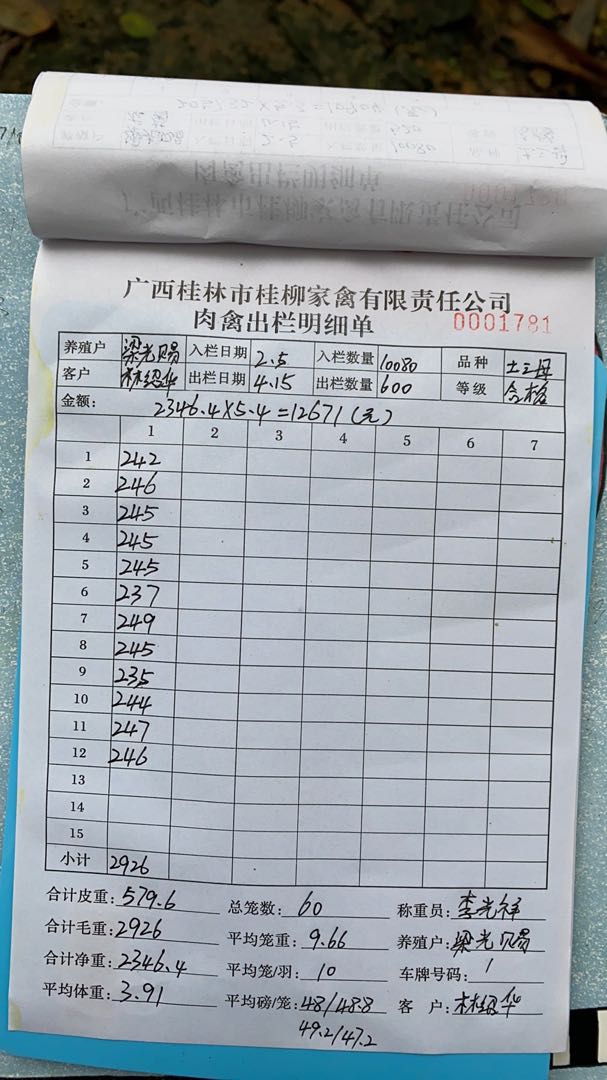 广西桂林市桂柳家禽有限责任公司
肉禽出栏明细单 0001781
养殖户 梁光赐 入栏日期 2.5 入栏数量 10080 品种 土三母
客户 林绍华 出栏日期 4.15 出栏数量 600 等级 合格
金额: 2346.4×5.4=12671(元)
1 2 3 4 5 6 7
1 242
2 246
3 245
4 245
5 245
6 237
7 249
8 245
9 235
10 244
11 247
12 246
13
14
15
小计 2926
合计皮重: 579.6 总笼数: 60 称重员: 李光祥
合计毛重: 2926 平均笼重: 9.66 养殖户: 梁光赐
合计净重: 2346.4 平均笼/羽: 10 车牌号码: 1
平均体重: 3.91 平均磅/笼: 48/48.8 客户: 林绍华
49.2/47.2